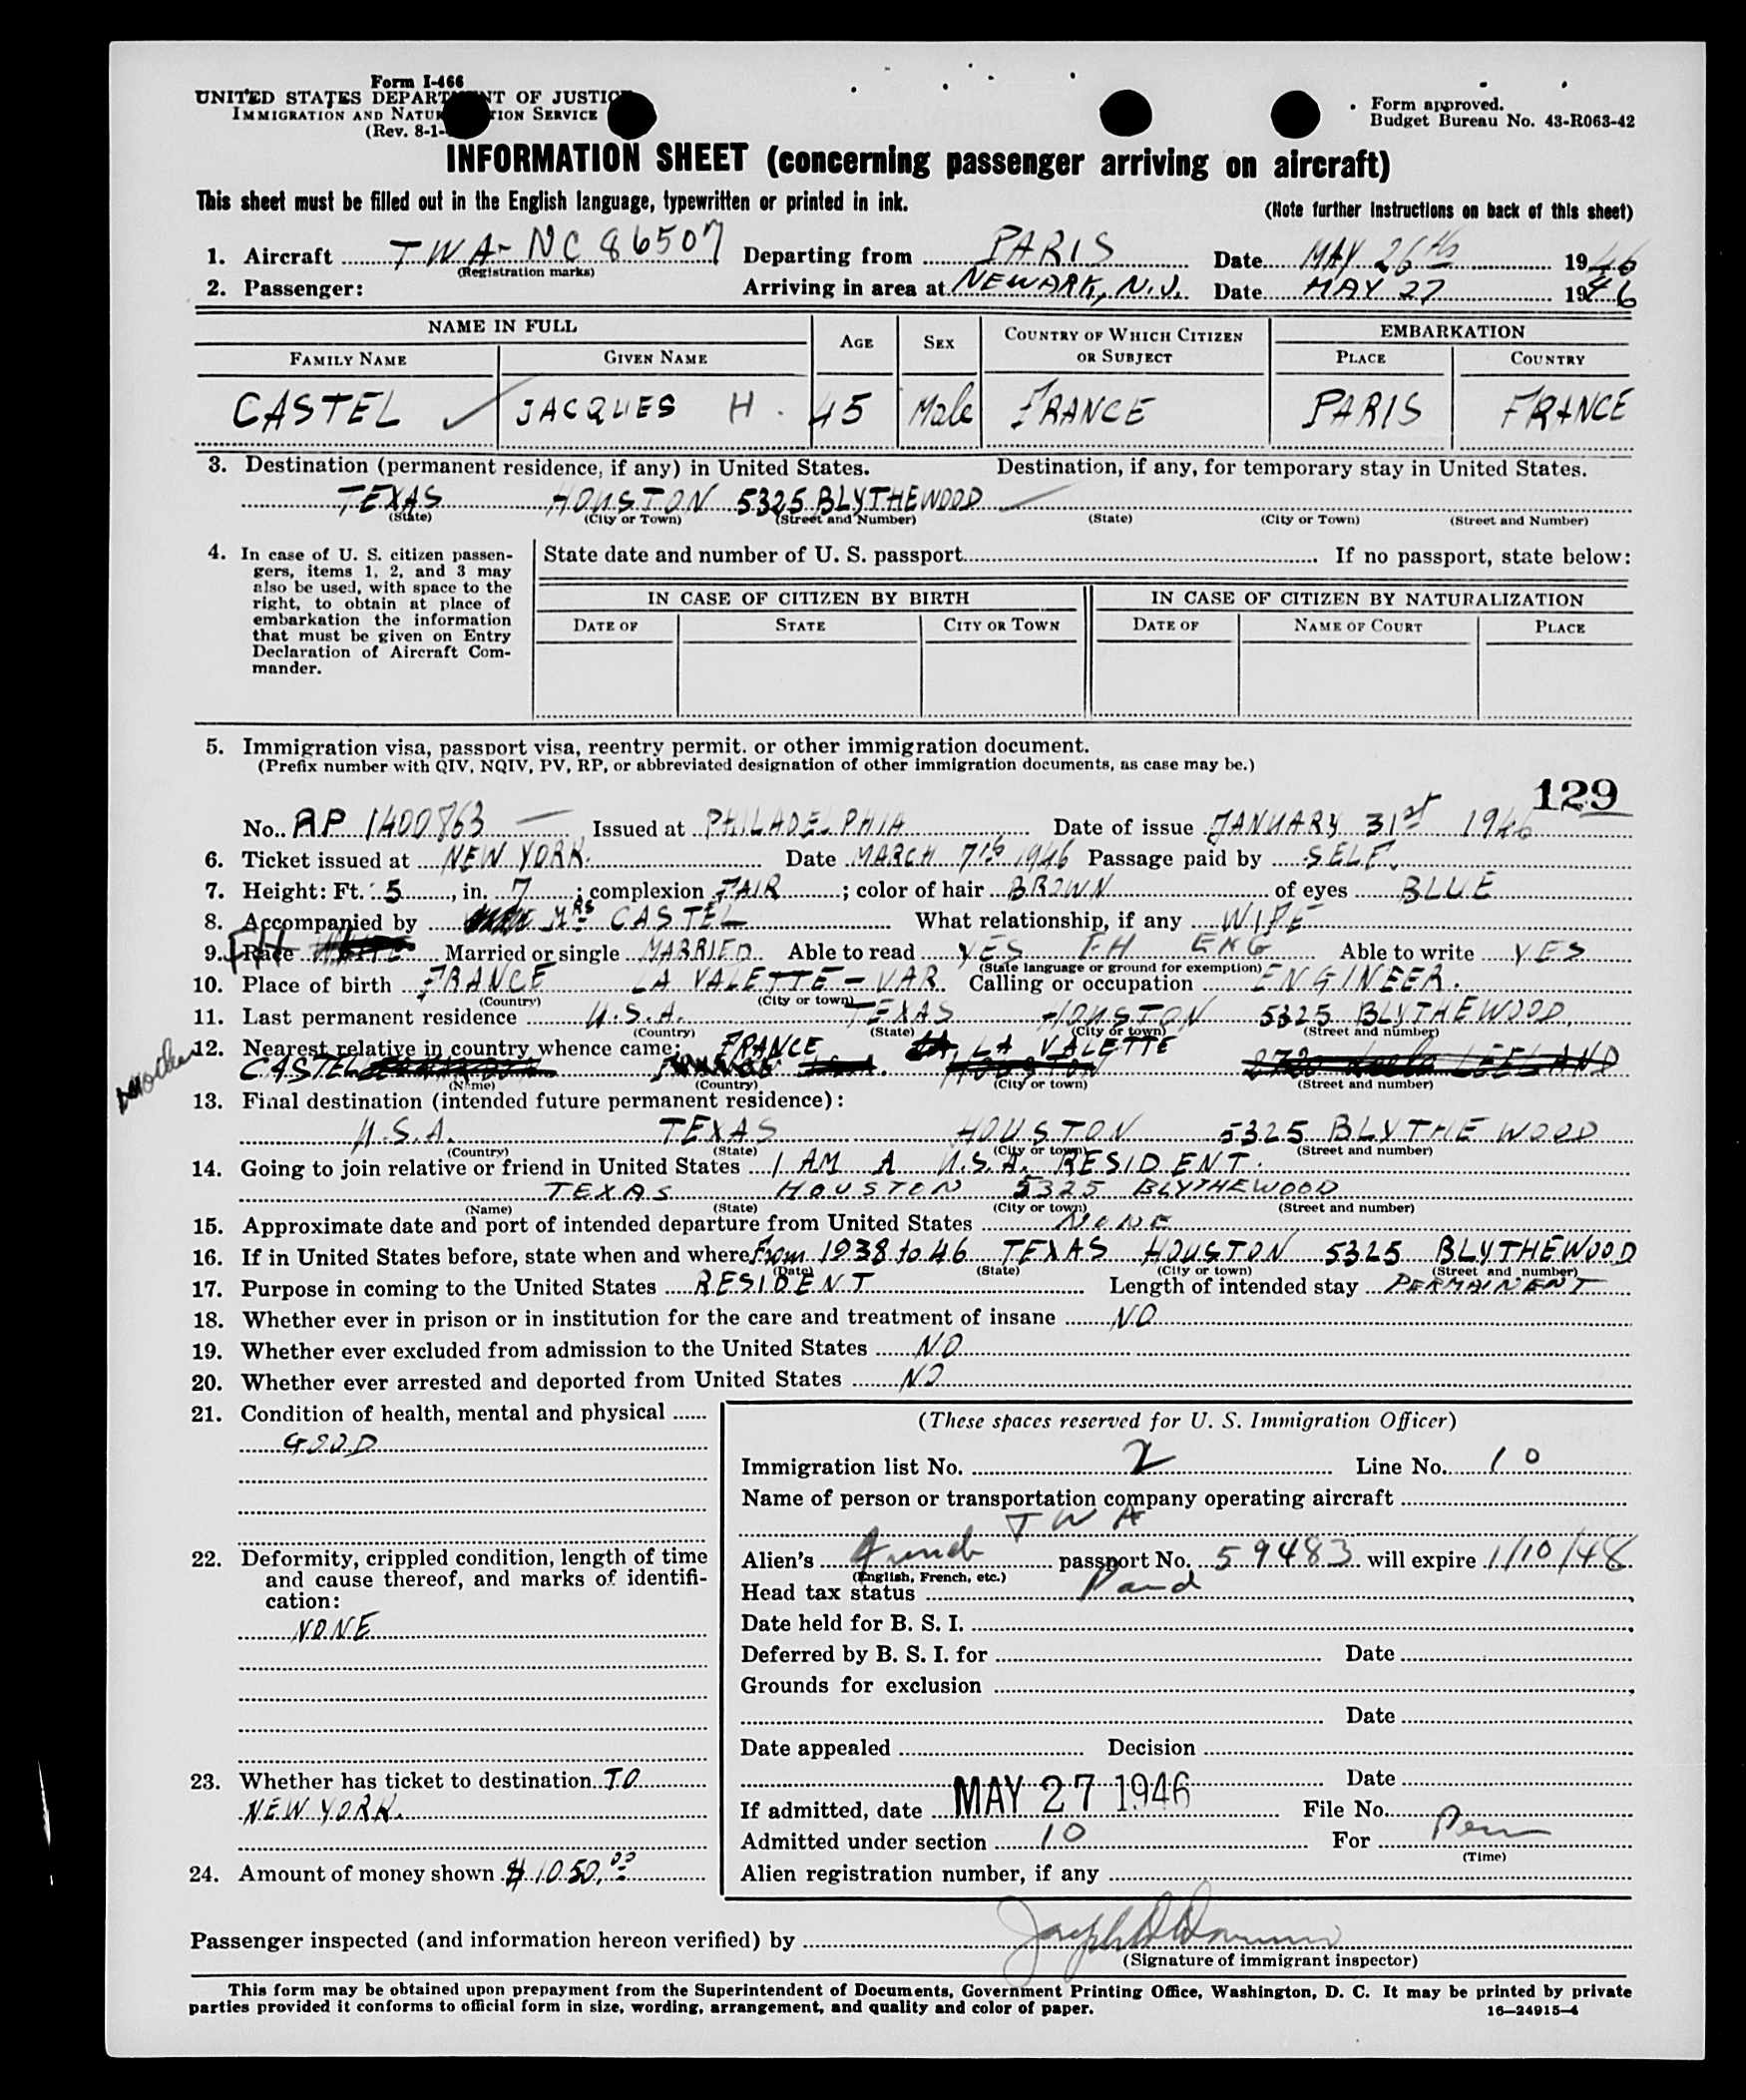 Form I-466
UNITED STATES DEPARTMENT OF JUSTICE
IMMIGRATION AND NATURALIZATION SERVICE
(Rev. 8-1-
Form approved.
Budget Bureau No. 43-R063-42
INFORMATION SHEET (concerning passenger arriving on aircraft)
This sheet must be filled out in the English language, typewritten or printed in ink.
(Note further instructions on back of this sheet)
1. Aircraft TWA- NC 86507 Departing from PARIS Date MAY 26th 1946
(Registration marks)
2. Passenger: Arriving in area at NEWARK, N.J. Date MAY 27 1946
NAME IN FULL AGE SEX COUNTRY OF WHICH CITIZEN OR SUBJECT EMBARKATION
FAMILY NAME GIVEN NAME PLACE COUNTRY
CASTEL JACQUES H. 45 Male FRANCE PARIS FRANCE
3. Destination (permanent residence, if any) in United States. Destination, if any, for temporary stay in United States.
TEXAS HOUSTON 5325 BLYTHEWOOD
(State) (City or Town) (Street and Number) (State) (City or Town) (Street and Number)
4. In case of U. S. citizen passen-
gers, items 1, 2, and 3 may
also be used, with space to the
right, to obtain at place of
embarkation the information
that must be given on Entry
Declaration of Aircraft Com-
mander.
State date and number of U. S. passport If no passport, state below:
IN CASE OF CITIZEN BY BIRTH IN CASE OF CITIZEN BY NATURALIZATION
DATE OF STATE CITY OR TOWN DATE OF NAME OF COURT PLACE
5. Immigration visa, passport visa, reentry permit, or other immigration document.
(Prefix number with QIV, NQIV, PV, RP, or abbreviated designation of other immigration documents, as case may be.)
129
No. RP 1400763 Issued at PHILADELPHIA Date of issue JANUARY 31st 1946
6. Ticket issued at NEW YORK. Date MARCH 7th 1946 Passage paid by SELF.
7. Height: Ft. 5, in. 7; complexion FAIR; color of hair BROWN of eyes BLUE
8. Accompanied by Mrs CASTEL What relationship, if any WIFE
9. Race FH Married or single MARRIED Able to read YES FH ENG Able to write YES
(State language or ground for exemption)
10. Place of birth FRANCE LA VALETTE - VAR Calling or occupation ENGINEER.
(Country) (City or town)
11. Last permanent residence U.S.A. TEXAS HOUSTON 5325 BLYTHEWOOD,
(Country) (State) (City or town) (Street and number)
12. Nearest relative in country whence came: FRANCE LA VALETTE
mother CASTEL
(Name) (Country) (City or town) (Street and number)
13. Final destination (intended future permanent residence):
U.S.A. TEXAS HOUSTON 5325 BLYTHEWOOD
(Country) (State) (City or town) (Street and number)
14. Going to join relative or friend in United States I AM A U.S.A. RESIDENT.
TEXAS HOUSTON 5325 BLYTHEWOOD
(Name) (State) (City or town) (Street and number)
15. Approximate date and port of intended departure from United States NONE
16. If in United States before, state when and where From 1938 to 46 TEXAS HOUSTON 5325 BLYTHEWOOD
(Date) (State) (City or town) (Street and number)
17. Purpose in coming to the United States RESIDENT Length of intended stay PERMAINENT
18. Whether ever in prison or in institution for the care and treatment of insane NO
19. Whether ever excluded from admission to the United States NO
20. Whether ever arrested and deported from United States NO
21. Condition of health, mental and physical
GOOD
22. Deformity, crippled condition, length of time
and cause thereof, and marks of identifi-
cation:
NONE
23. Whether has ticket to destination TO
NEW YORK.
24. Amount of money shown $ 1050.00
(These spaces reserved for U. S. Immigration Officer)
Immigration list No. 2 Line No. 10
Name of person or transportation company operating aircraft
TWA
Alien's French passport No. 59483 will expire 1/10/48
(English, French, etc.)
Head tax status Paid
Date held for B. S. I.
Deferred by B. S. I. for Date
Grounds for exclusion
Date
Date appealed Decision
Date
If admitted, date MAY 27 1946 File No.
Admitted under section 10 For Perm
(Time)
Alien registration number, if any
Passenger inspected (and information hereon verified) by
(Signature of immigrant inspector)
This form may be obtained upon prepayment from the Superintendent of Documents, Government Printing Office, Washington, D. C. It may be printed by private
parties provided it conforms to official form in size, wording, arrangement, and quality and color of paper.
16—24915-4